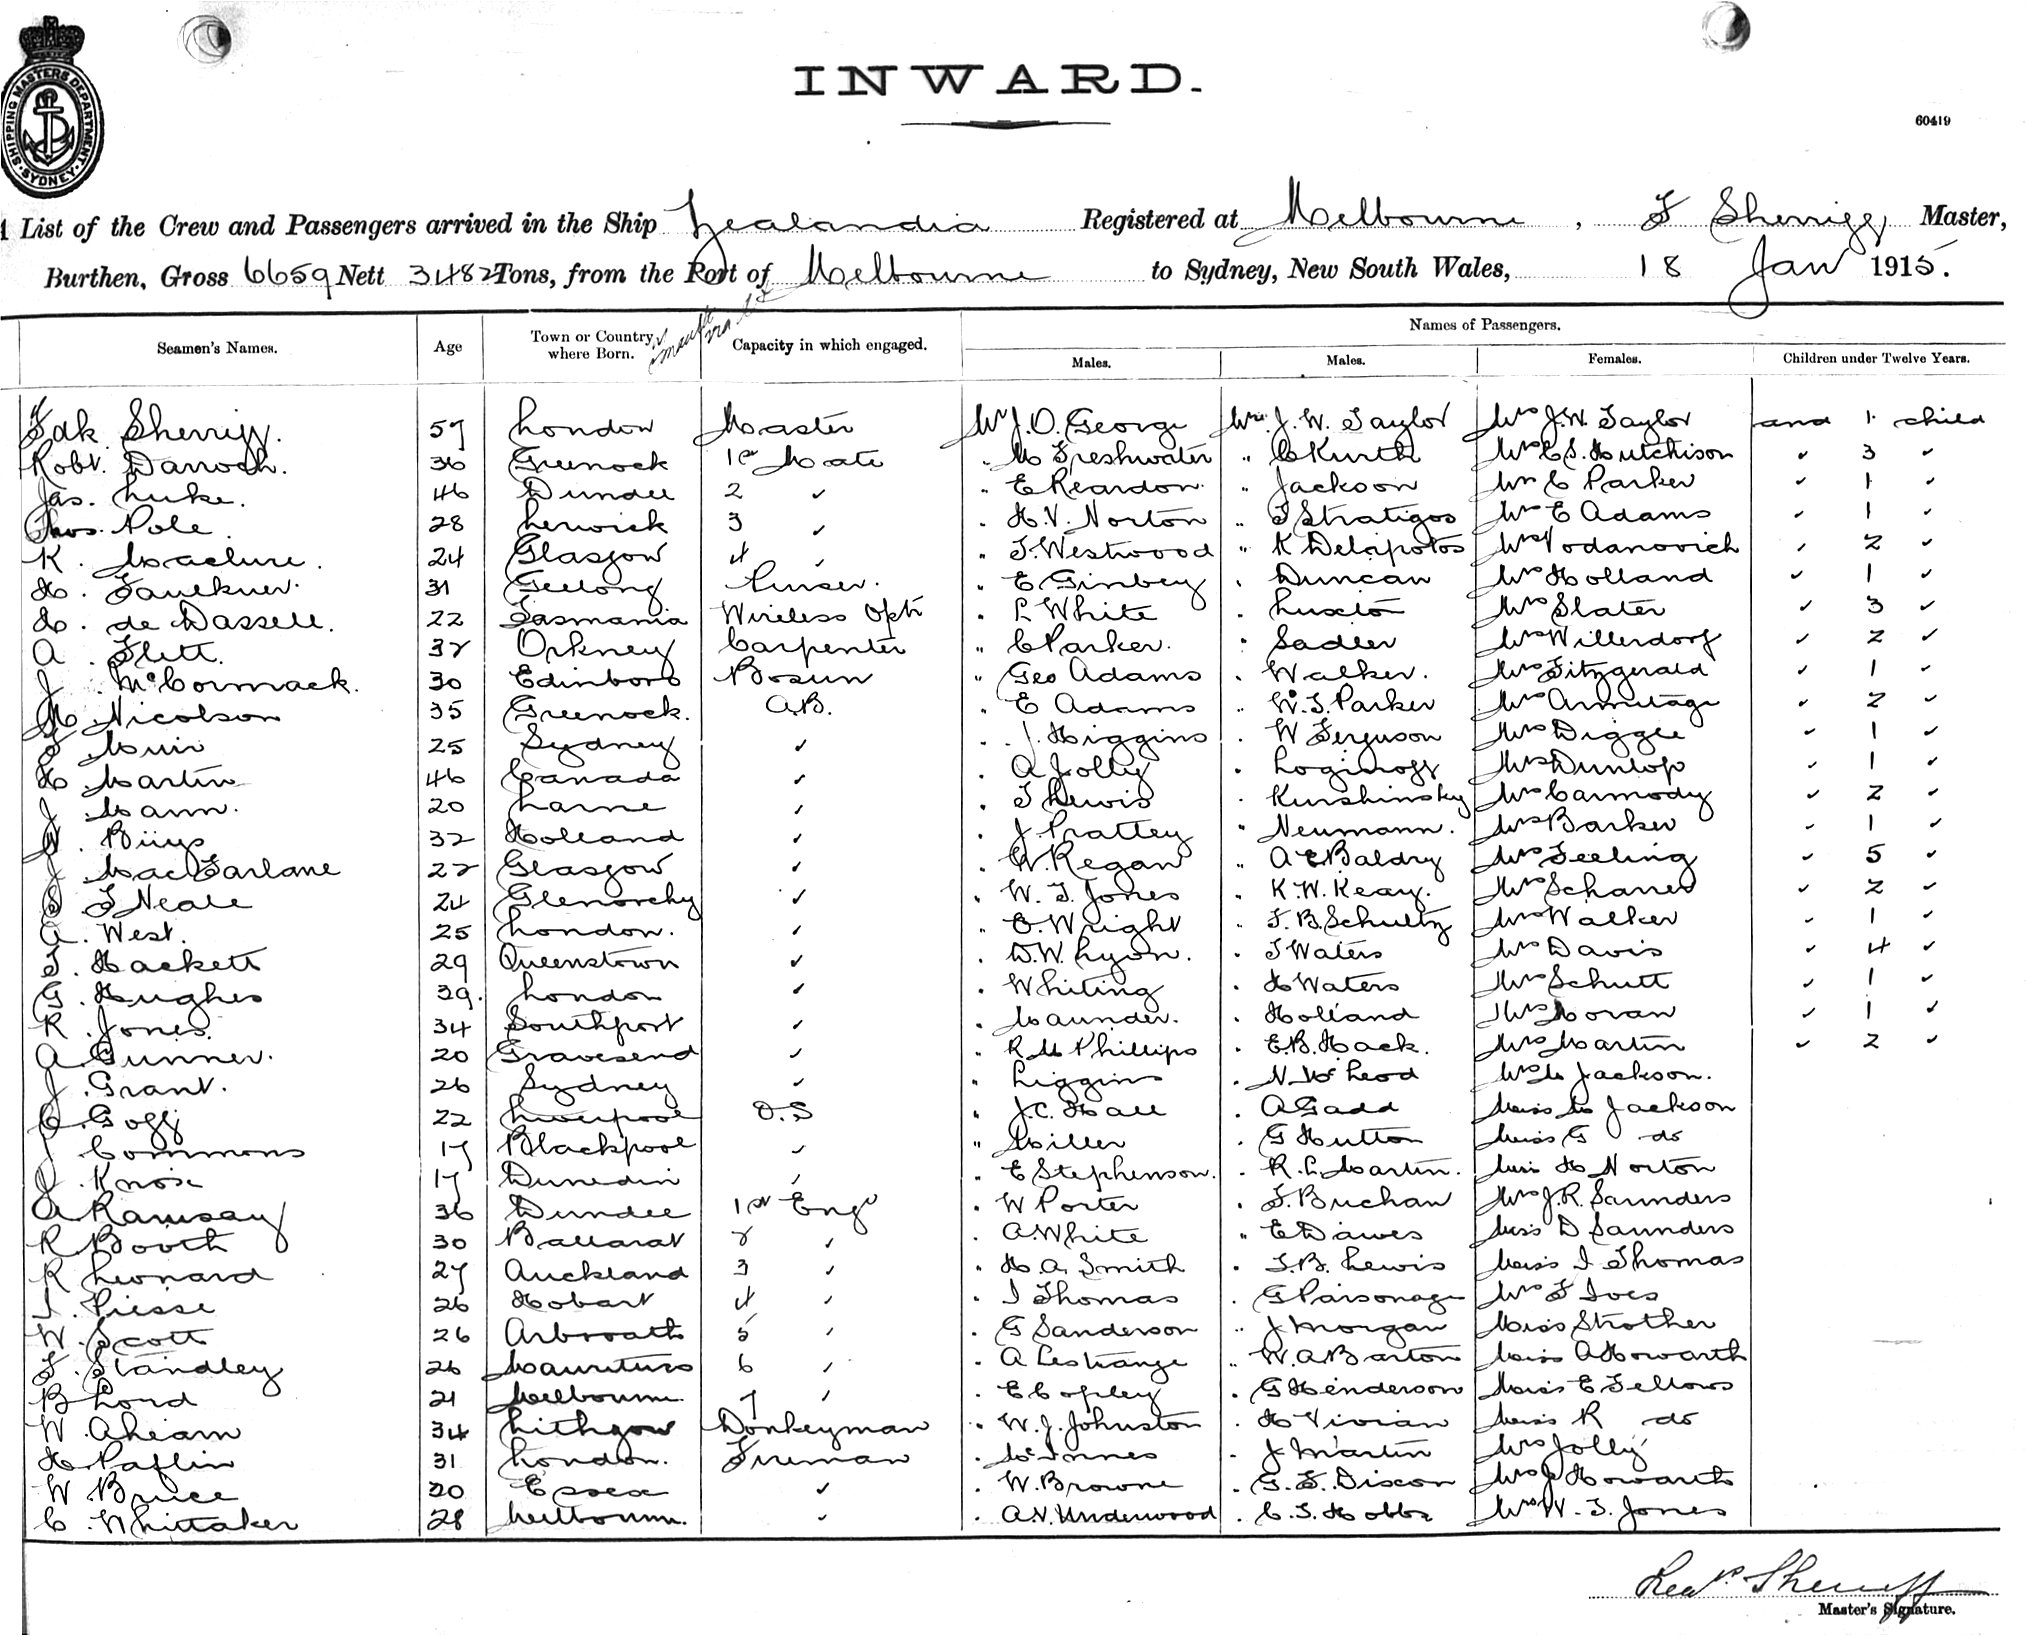 SHIPPING MASTERS DEPARTMENT. SYDNEY.
INWARD.
60419
List of the Crew and Passengers arrived in the Ship Zealandia Registered at Melbourne, F Sherriff Master,
Burthen, Gross 6659 Nett 3482 Tons, from the Port of Melbourne to Sydney, New South Wales, 18 Jan 1915.
Seamen's Names. Age Town or Country where Born. Capacity in which engaged. Names of Passengers.
Males. Males. Females. Children under Twelve Years.
Fdk Sherriff. 57 London Master Mr J.O. George Mr J.W. Taylor Mrs J.W. Taylor and 1 child
Robt. Darroch. 36 Greenock 1st Mate " M Freshwater " C Kurth Mrs C S. Hutchison ✓ 3 ✓
Jas. Luke. 46 Dundee 2 ✓ " E Reardon " Jackson Mrs C Parker ✓ 1 ✓
Thos. Pole 28 Lerwick 3 ✓ " H.V. Norton " J Stratigos Mrs E Adams ✓ 1 ✓
K. Maclure. 24 Glasgow 4 ✓ " J. Westwood " K Delapotos Mrs Vodanovich ✓ 2 ✓
H. Faulkner. 31 Geelong Purser. " E Ginbey " Duncan Mrs Holland ✓ 1 ✓
H. de Dassell. 22 Tasmania Wireless Optr " L White " Luxton Mrs Slater ✓ 3 ✓
A. Flett. 32 Orkney Carpenter " C Parker. " Sadler Mrs Willerdorf ✓ 2 ✓
J. McCormack. 30 Edinboro Bosun " Geo Adams " Walker. Mrs Fitzgerald ✓ 1 ✓
M Nicolson 35 Greenock. A.B. " E Adams " W.J. Parker Mrs Armitage ✓ 2 ✓
F Muir 25 Sydney ✓ " J. Higgins " W Ferguson Mrs Diggle ✓ 1 ✓
H Martin 46 Canada ✓ " A Jolly " Loginoff Mrs Dunlop ✓ 1 ✓
J Mann. 20 Larne ✓ " J Lewis " Kurshinsky Mrs Carmody ✓ 2 ✓
W. Biiys 32 Holland ✓ " J. Prattey " Neumann. Mrs Barker ✓ 1 ✓
J MacFarlane 22 Glasgow ✓ " W. Regan " A E Baldry Mrs Feeling ✓ 5 ✓
S J Neale 24 Glenorchy ✓ " W. J. Jones " K.W. Keary. Mrs Schaner ✓ 2 ✓
A. West. 25 London. ✓ " E. Wright " F.B. Schultz Mrs Walker ✓ 1 ✓
J. Hackett 29 Queenstown ✓ " D.W. Lyon. " J Waters Mrs Davis ✓ 4 ✓
G. Hughes 39. London ✓ " Whiting " H Waters Mrs Schutt ✓ 1 ✓
R. Jones. 34 Southport ✓ " Maunder. " Holland Mrs Moran ✓ 1 ✓
A Gunner. 20 Gravesend ✓ " R M Phillips " E.B. Hack. Mrs Martin ✓ 2 ✓
J. Grant. 26 Sydney ✓ " Liggins " N. McLeod Mrs M Jackson.
C. Goff 22 Liverpool O.S " J.C. Hall " A Gadd Miss M Jackson
J Commons 17 Blackpool ✓ " Miller " G Hutton Miss G do
J. Knox 17 Dunedin ✓ " E Stephenson. " R.L. Martin. Miss H Norton
A Ramsay 36 Dundee 1st Engr " W Porter " F. Buchan Mrs J.R. Saunders
R Booth 30 Ballarat 2 ✓ " A. White " E Dawes Miss D Saunders
R Leonard 27 Auckland 3 ✓ " H. A. Smith " T.B. Lewis Miss I Thomas
I. Piesse 26 Hobart 4 ✓ " I Thomas " G Parsonage Mrs F Ives
W. Scott 26 Arbroath 5 ✓ " G Sanderson " J Morgan Miss Strother
F. Standley 26 Mauritius 6 ✓ " A Lestrange " W. A Barton Miss A Howarth
B Lord 21 Melbourne. 7 ✓ " E Copley " G Henderson Miss E Fellows
W. Ahearn 34 Lithgow Donkeyman " W. J. Johnston " H Vivian Miss R do
H. Paflin 31 London. Fireman " McInnes " J Martin Mrs Jolly
W. Bruce 20 Essex ✓ " W. Browne " G. F. Dixon Mrs J Howarth
C. Whittaker 28 Melbourne. ✓ " A.V. Underwood " C. J. Hobbs Mrs W. J. Jones
Sherriff
Master's Signature.